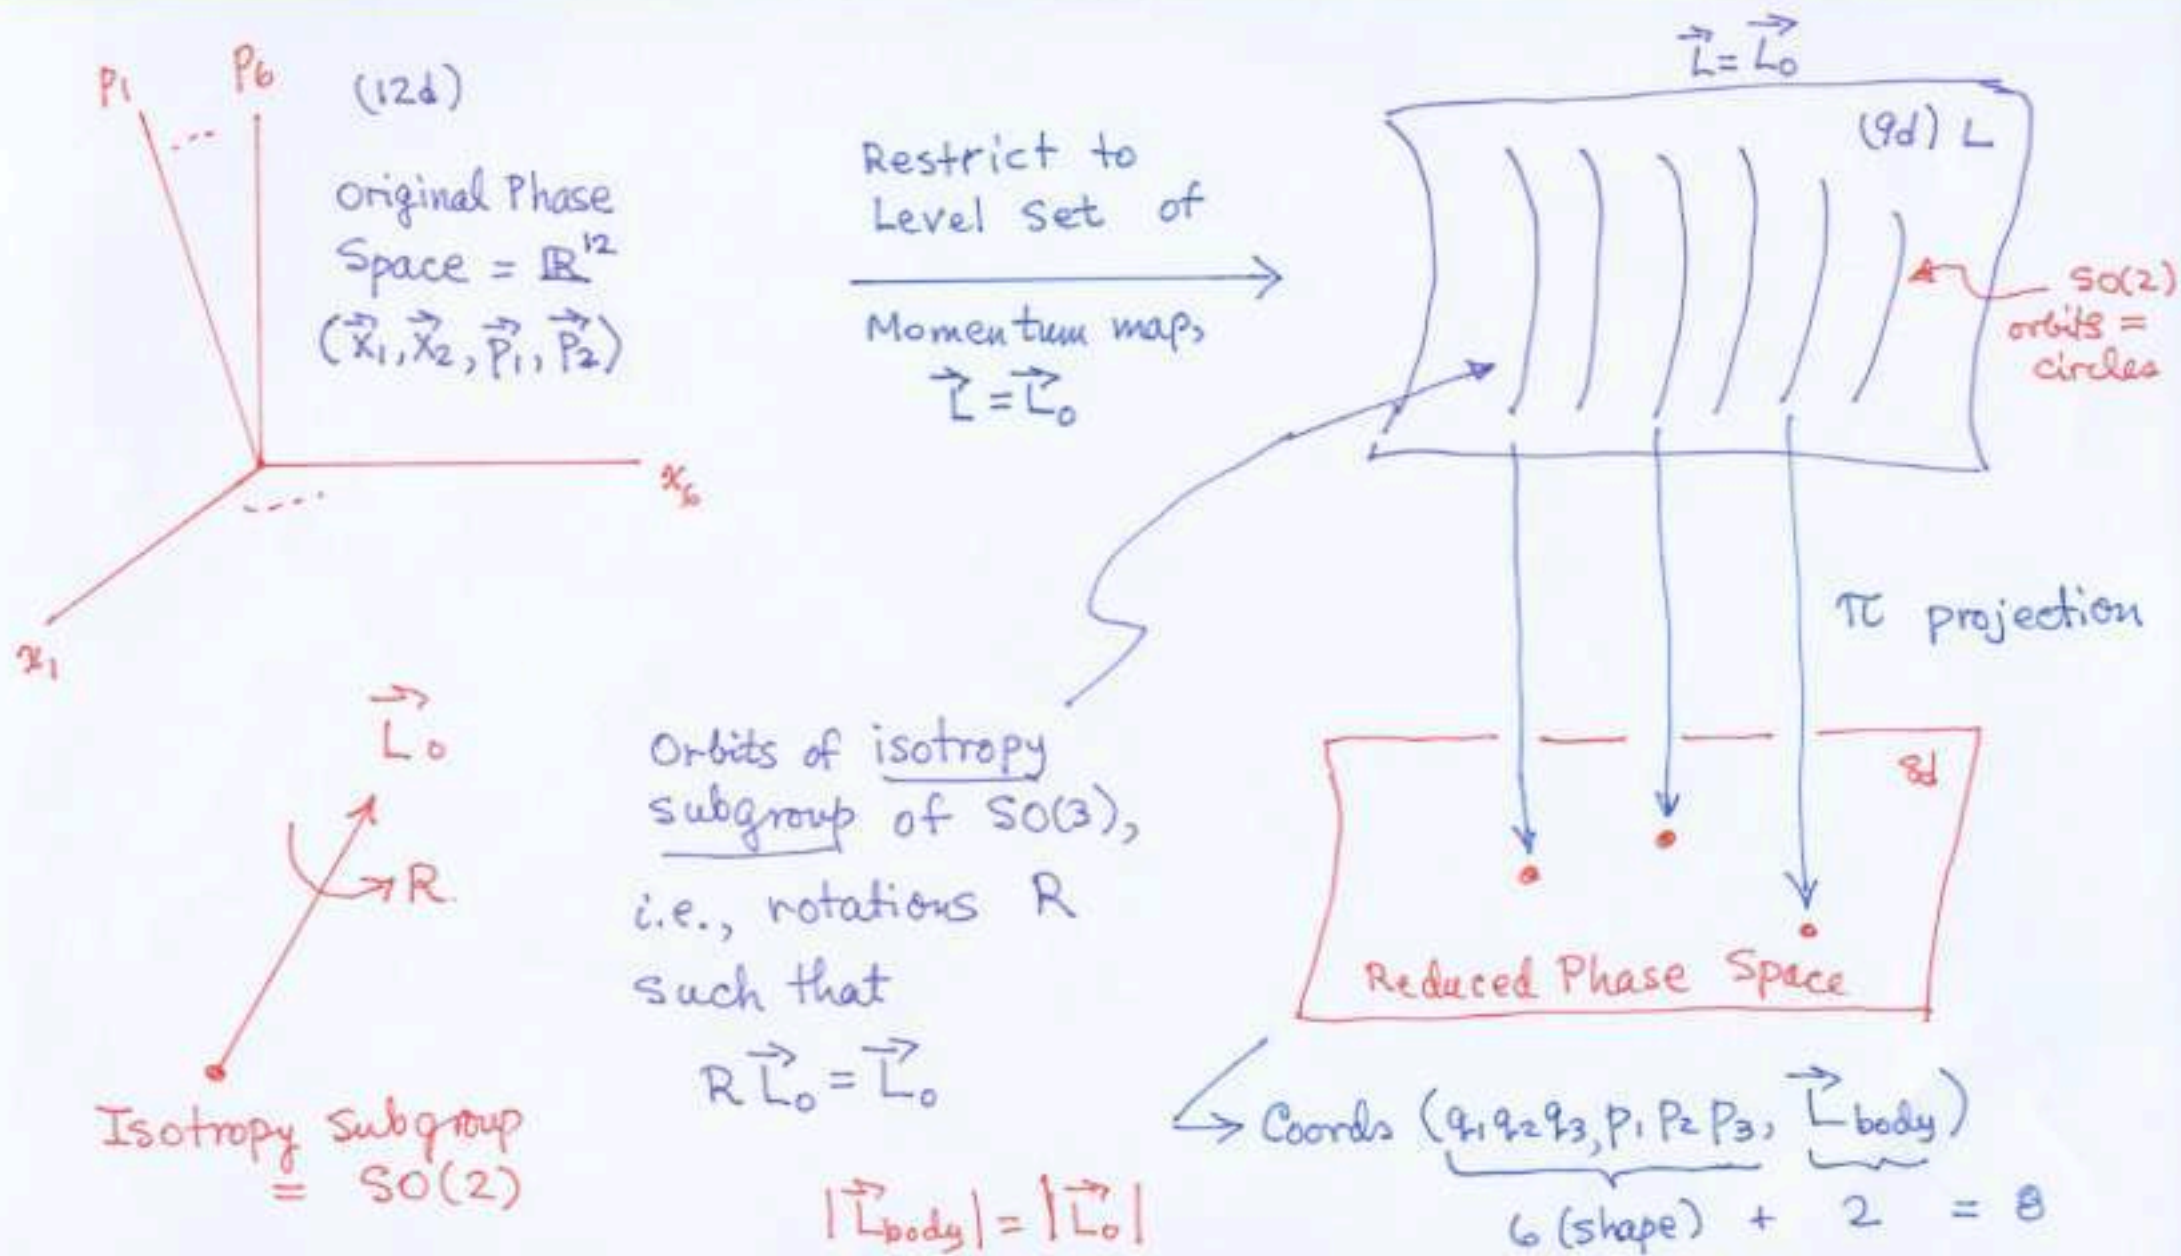 P₁
P₆
(12d)
Original Phase
Space = ℝ¹²
(x⃗₁, x⃗₂, p⃗₁, p⃗₂)
x₆
x₁
Restrict to
Level Set of
Momentum map,
L⃗ = L⃗₀
L⃗ = L⃗₀
(9d) L
SO(2)
orbits =
circles
π projection
L⃗₀
R
Isotropy Subgroup
= SO(2)
Orbits of isotropy
subgroup of SO(3),
i.e., rotations R
such that
R L⃗₀ = L⃗₀
|L⃗body| = |L⃗₀|
8d
Reduced Phase Space
Coords (q₁q₂q₃, p₁ p₂ p₃, L⃗body)
6 (shape) + 2 = 8